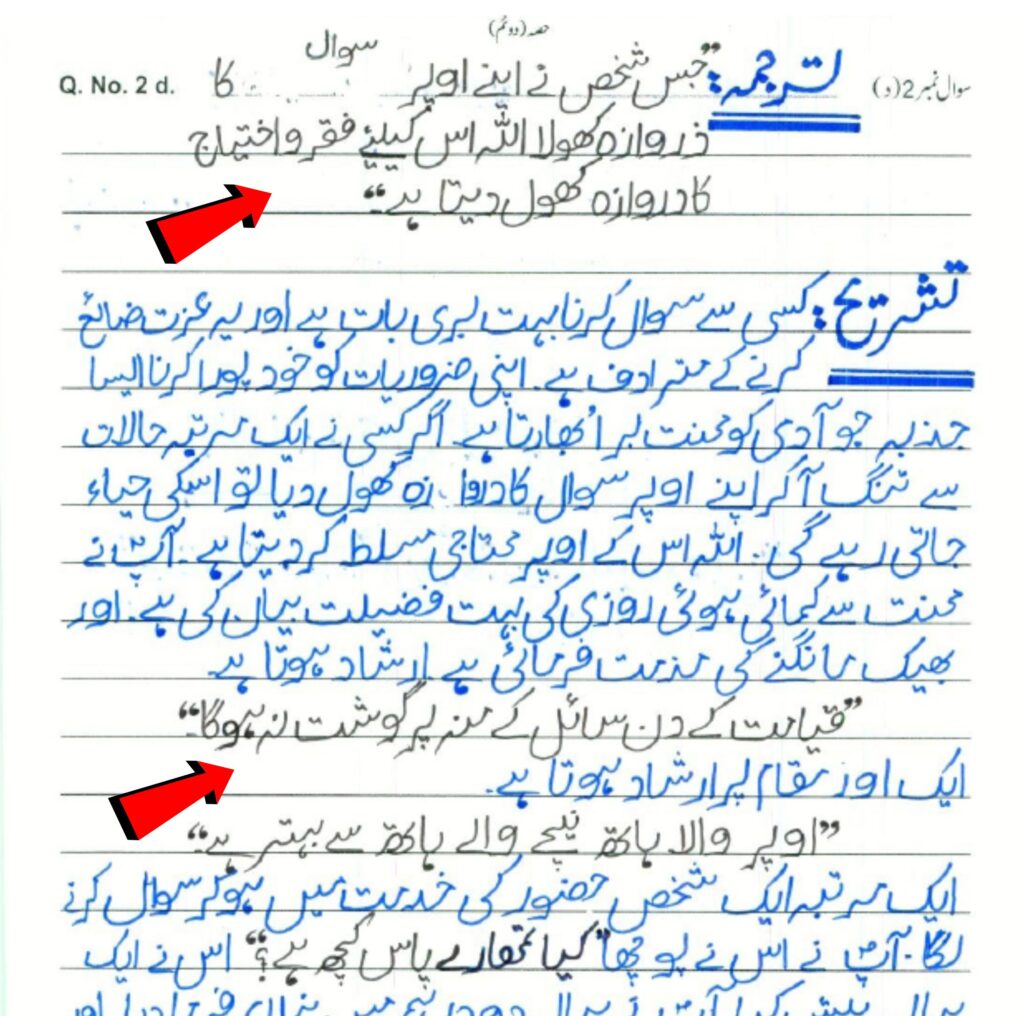 حصہ (دوئم)
سوال نمبر 2 (د) ترجمہ: ”جس شخص نے اپنے اوپر سوال کا Q. No. 2 d.
دروازہ کھولا اللہ اس کیلئے فقر و احتیاج
کا دروازہ کھول دیتا ہے“
تشریح: کسی سے سوال کرنا بہت بری بات ہے اور یہ عزت ضائع
کرنے کے مترادف ہے۔ اپنی ضروریات کو خود پورا کرنا ایسا
جذبہ جو آدمی کو محنت پر اُبھارتا ہے۔ اگر کسی نے ایک مرتبہ حالات
سے تنگ آ کر اپنے اوپر سوال کا دروازہ کھول دیا تو اسکی حیاء
جاتی رہے گی۔ اللہ اس کے اوپر محتاجی مسلط کر دیتا ہے۔ آپؐ نے
محنت سے کمائی ہوئی روزی کی بہت فضیلت بیان کی ہے۔ اور
بھیک مانگنے کی مذمت فرمائی ہے ارشاد ہوتا ہے۔
”قیامت کے دن سائل کے منہ پر گوشت نہ ہوگا۔“
ایک اور مقام پر ارشاد ہوتا ہے۔
”اوپر والا ہاتھ نیچے والے ہاتھ سے بہتر ہے“
ایک مرتبہ ایک شخص حضور کی خدمت میں ہو کر سوال کرنے
لگا۔ آپؐ نے اس نے پوچھا ”کیا تمھارے پاس کچھ ہے؟“ اس نے ایک